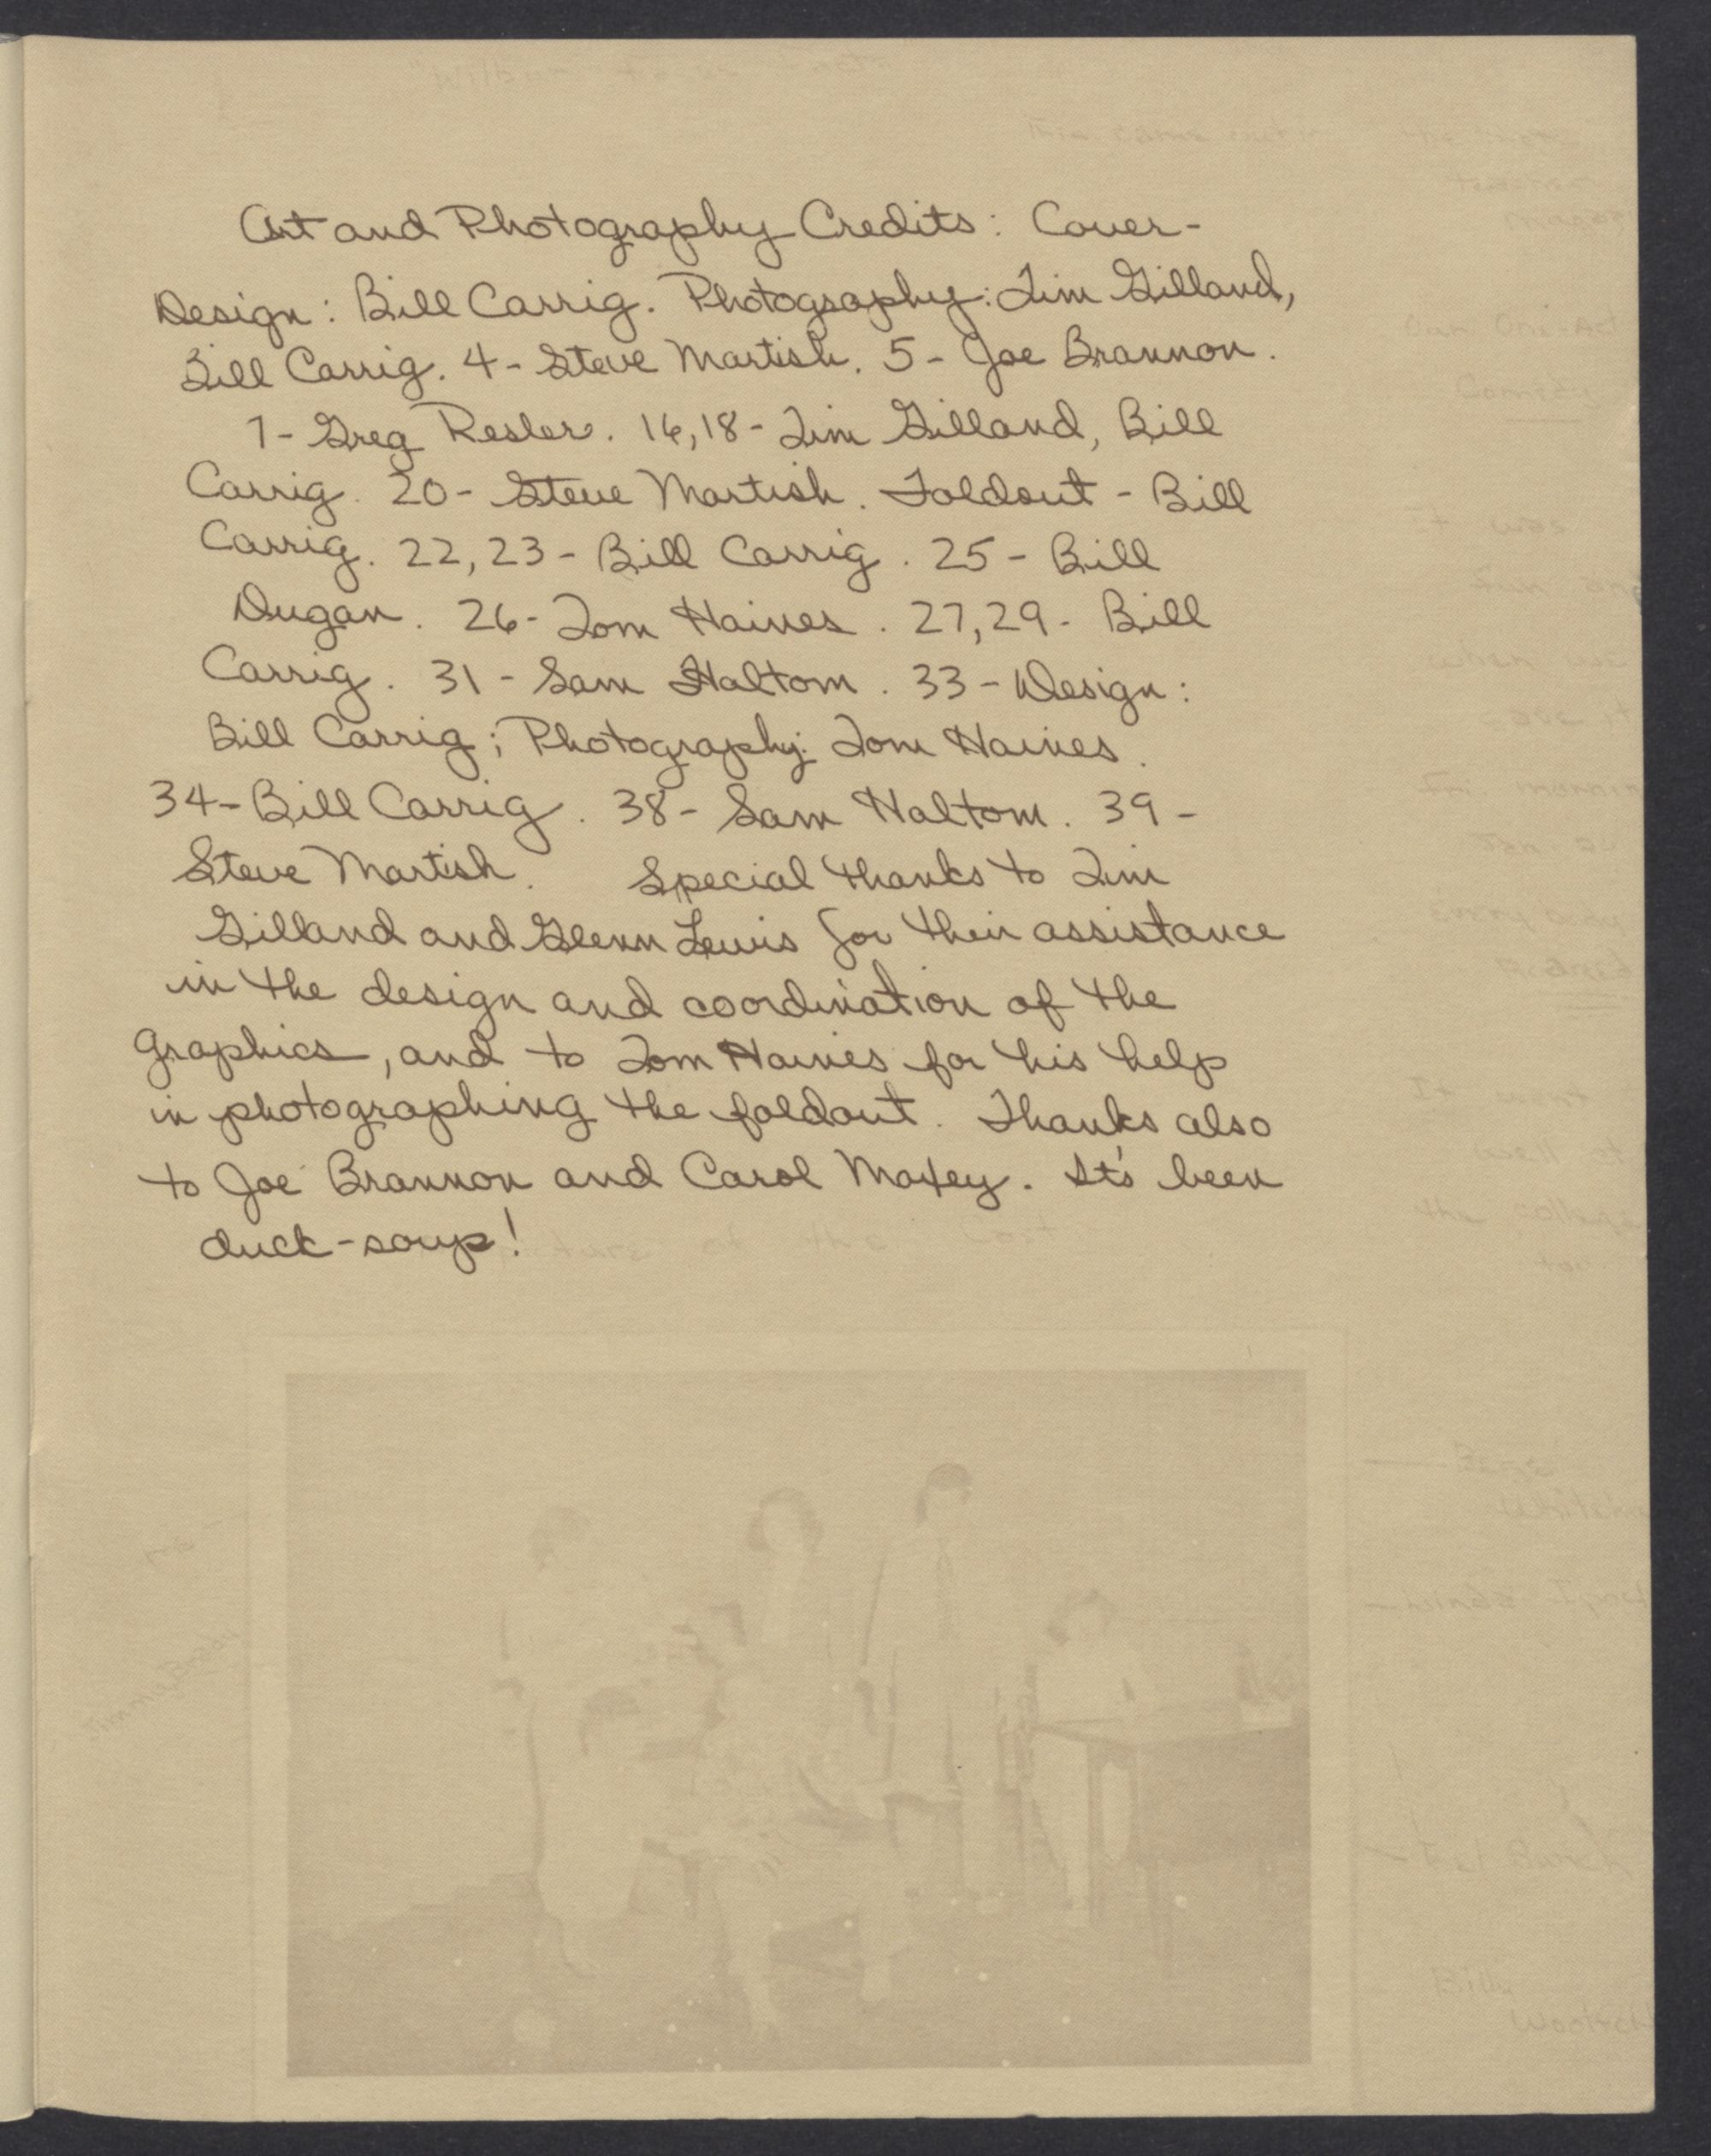 Art and Photography Credits: Cover-
Design: Bill Carrig. Photography: Jim Gilland,
Bill Carrig. 4- Steve Martish. 5- Joe Brannon.
7- Greg Resler. 16,18- Jim Gilland, Bill
Carrig. 20- Steve Martish. Foldout - Bill
Carrig. 22,23- Bill Carrig. 25- Bill
Dugan. 26- Tom Haines. 27,29- Bill
Carrig. 31- Sam Haltom. 33- Design:
Bill Carrig; Photography: Tom Haines.
34- Bill Carrig. 38- Sam Haltom. 39-
Steve Martish. Special thanks to Jim
Gilland and Glenn Lewis for their assistance
in the design and coordination of the
graphics, and to Tom Haines for his help
in photographing the foldout. Thanks also
to Joe Brannon and Carol Maxey. It's been
duck-soup!
This came
Our One-Act
It was
fun and
when
Fri
It went
well at
the college
Billy